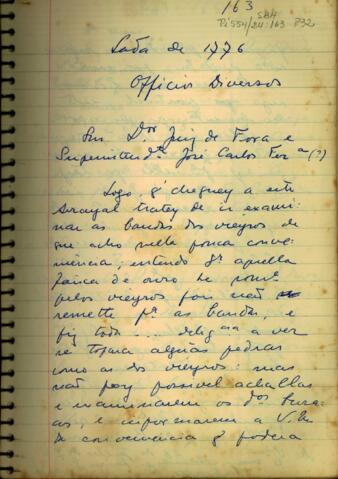 163
SBH
Pi 554/24:163 P32
de 1776
Officios Diversos
Snr. Dor Juiz de Fora e
Superintend.e José Carlos Fer.a (?)
Logo, q' cheguey a este
Arrayal tratey de ir exami-
nar as bandas dos vieyros de
que acho nella pouca conve-
niencia, entendo q' aquella
faisca de ouro
pelos vieyros foi não
remette p.a as bandas, e
fiz toda ... delig.cia a ver
se topava alguãs pedras
como as dos vieyros: mas
não foy possivel achallas
e examinarem os d.os bura-
cos, e informarem a V. M.
da conveniencia q' podera